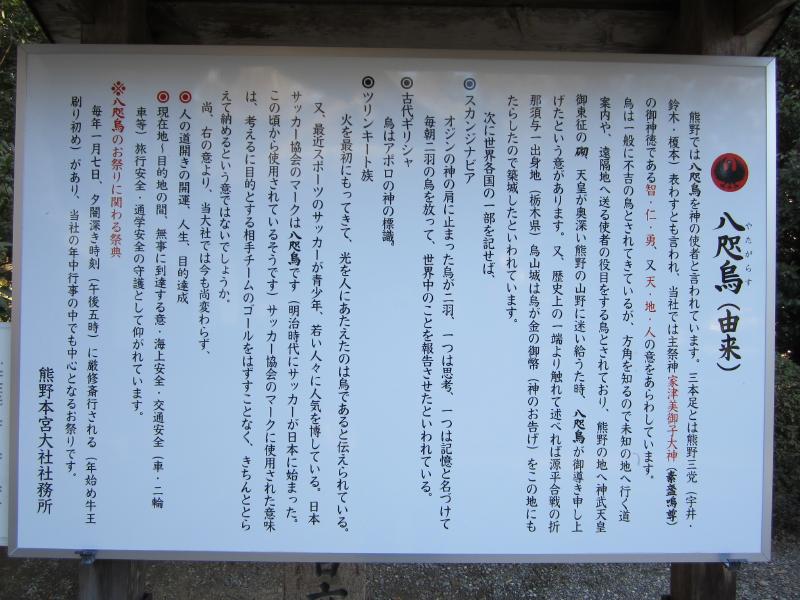 八咫烏（由来）
やたがらす
熊野では八咫烏を神の使者と言われています。三本足とは熊野三党（宇井・
鈴木・榎本）表わすとも言われ、当社では主祭神家津美御子大神（素盞嗚尊）
の御神徳である智・仁・勇、又天・地・人の意をあらわしています。
烏は一般に不吉の鳥とされてきているが、方角を知るので未知の地へ行く道
案内や、遠隔地へ送る使者の役目をする鳥とされており、熊野の地へ神武天皇
御東征の砌、天皇が奥深い熊野の山野に迷い給うた時、八咫烏が御導き申し上
げたという意があります。又、歴史上の一端より触れて述べれば源平合戦の折
那須与一出身地（栃木県）烏山城は烏が金の御幣（神のお告げ）をこの地にも
たらしたので築城したといわれています。
次に世界各国の一部を記せば、
◉スカンジナビア
オジンの神の肩に止まった烏が二羽、一つは思考、一つは記憶と名づけて
毎朝二羽の烏を放って、世界中のことを報告させたといわれている。
◉古代ギリシャ
烏はアポロの神の標識。
◉ツリンキート族
火を最初にもってきて、光を人にあたえたのは烏であると伝えられている。
又、最近スポーツのサッカーが青少年、若い人々に人気を博している。日本
サッカー協会のマークは八咫烏です（明治時代にサッカーが日本に始まった。
この頃から使用されているそうです）サッカー協会のマークに使用された意味
は、考えるに目的とする相手チームのゴールをはずすことなく、きちんととら
えて納めるという意ではないでしょうか。
尚、右の意より、当大社では今も尚変わらず、
◉人の道開きの開運、人生、目的達成
◉現在地～目的地の間、無事に到達する意・海上安全・交通安全（車・二輪
車等）旅行安全・通学安全の守護として仰がれています。
※八咫烏のお祭りに関わる祭典
毎年一月七日、夕闇深き時刻（午後五時）に厳修斎行される（年始め牛王
刷り初め）があり、当社の年中行事の中でも中心となるお祭りです。
熊野本宮大社社務所